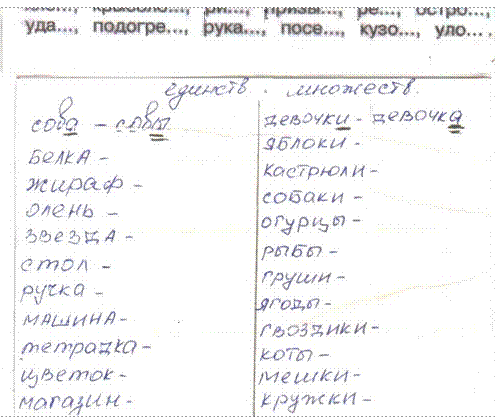 ри..., призы..., ре..., остро...,
уда..., подогре..., рука..., посе..., кузо..., уло... .
единств.
сова - совы
белка -
жираф -
олень -
звезда -
стол -
ручка -
машина -
тетрадка -
цветок -
магазин -
множеств.
девочки - девочка
яблоки -
кастрюли -
собаки -
огурцы -
рыбы -
груши -
ягоды -
гвоздики -
коты -
мешки -
кружки -